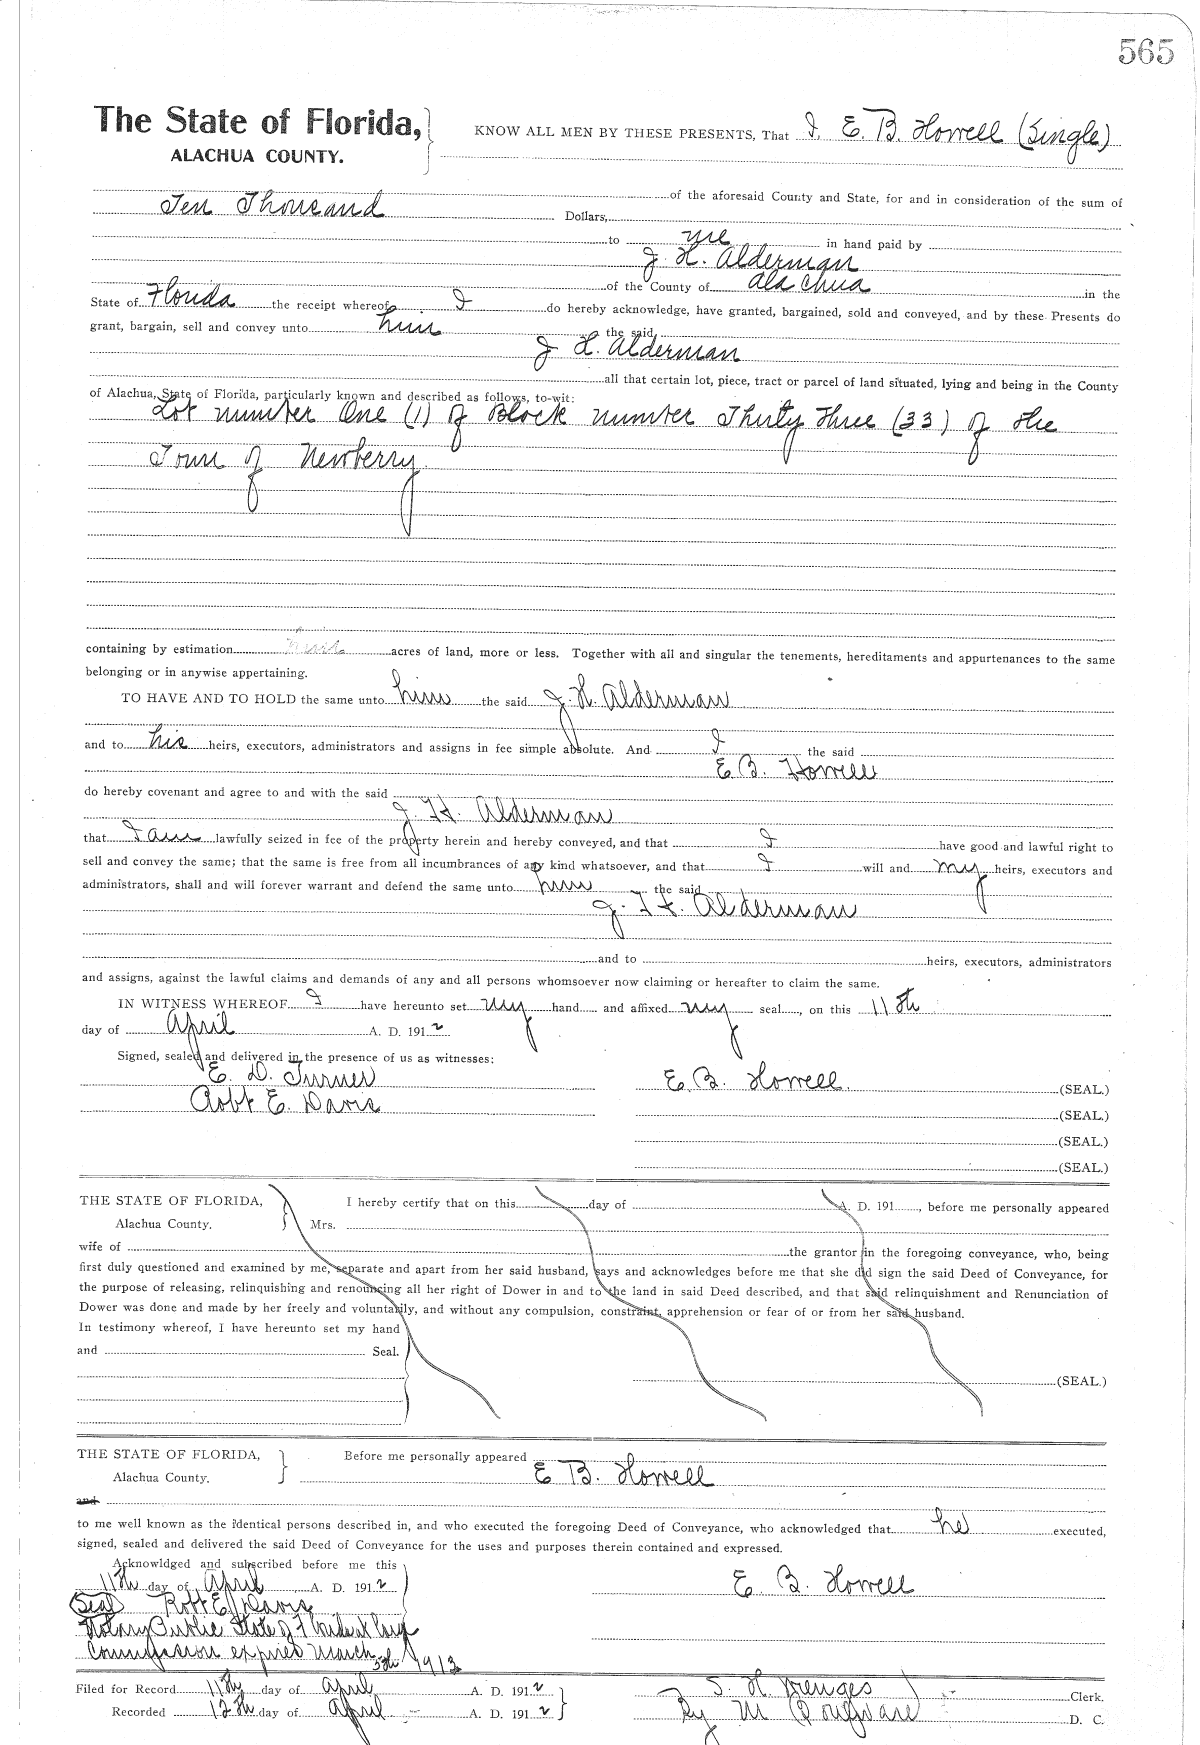 565
The State of Florida,
ALACHUA COUNTY.
KNOW ALL MEN BY THESE PRESENTS, That I, E. B. Howell (Single)
of the aforesaid County and State, for and in consideration of the sum of
Ten Thousand Dollars,
to me in hand paid by
J. H. Alderman
of the County of Alachua in the
State of Florida the receipt whereof I do hereby acknowledge, have granted, bargained, sold and conveyed, and by these Presents do
grant, bargain, sell and convey unto him the said
J H. Alderman
all that certain lot, piece, tract or parcel of land situated, lying and being in the County
of Alachua, State of Florida, particularly known and described as follows, to-wit:
Lot number One (1) of Block number Thirty Three (33) of the
Town of Newberry
containing by estimation acres of land, more or less. Together with all and singular the tenements, hereditaments and appurtenances to the same
belonging or in anywise appertaining.
TO HAVE AND TO HOLD the same unto him the said J. H. Alderman
and to his heirs, executors, administrators and assigns in fee simple absolute. And I the said
E B. Howell
do hereby covenant and agree to and with the said
J. H. Alderman
that I am lawfully seized in fee of the property herein and hereby conveyed, and that I have good and lawful right to
sell and convey the same; that the same is free from all incumbrances of any kind whatsoever, and that I will and my heirs, executors and
administrators, shall and will forever warrant and defend the same unto him the said
J. H. Alderman
and to heirs, executors, administrators
and assigns, against the lawful claims and demands of any and all persons whomsoever now claiming or hereafter to claim the same.
IN WITNESS WHEREOF I have hereunto set my hand and affixed my seal, on this 11th
day of April A. D. 1912
Signed, sealed and delivered in the presence of us as witnesses:
E. D. Turner
Robt E. Davis
E. B. Howell (SEAL.)
(SEAL.)
(SEAL.)
(SEAL.)
THE STATE OF FLORIDA,
Alachua County.
I hereby certify that on this day of A. D. 191 , before me personally appeared
Mrs.
wife of the grantor in the foregoing conveyance, who, being
first duly questioned and examined by me, separate and apart from her said husband, says and acknowledges before me that she did sign the said Deed of Conveyance, for
the purpose of releasing, relinquishing and renouncing all her right of Dower in and to the land in said Deed described, and that said relinquishment and Renunciation of
Dower was done and made by her freely and voluntarily, and without any compulsion, constraint, apprehension or fear of or from her said husband.
In testimony whereof, I have hereunto set my hand
and Seal.
(SEAL.)
THE STATE OF FLORIDA,
Alachua County.
Before me personally appeared
E B. Howell
and
to me well known as the identical persons described in, and who executed the foregoing Deed of Conveyance, who acknowledged that he executed,
signed, sealed and delivered the said Deed of Conveyance for the uses and purposes therein contained and expressed.
Acknowldged and subscribed before me this
11th day of April A. D. 1912
E. B. Howell
(Seal) Robt E. Davis
Notary Public State of Florida
Commission expires March 5th 1913
Filed for Record 11th day of April A. D. 1912
Recorded 12th day of April A. D. 1912
S. H. Wienges Clerk.
By M D. C.